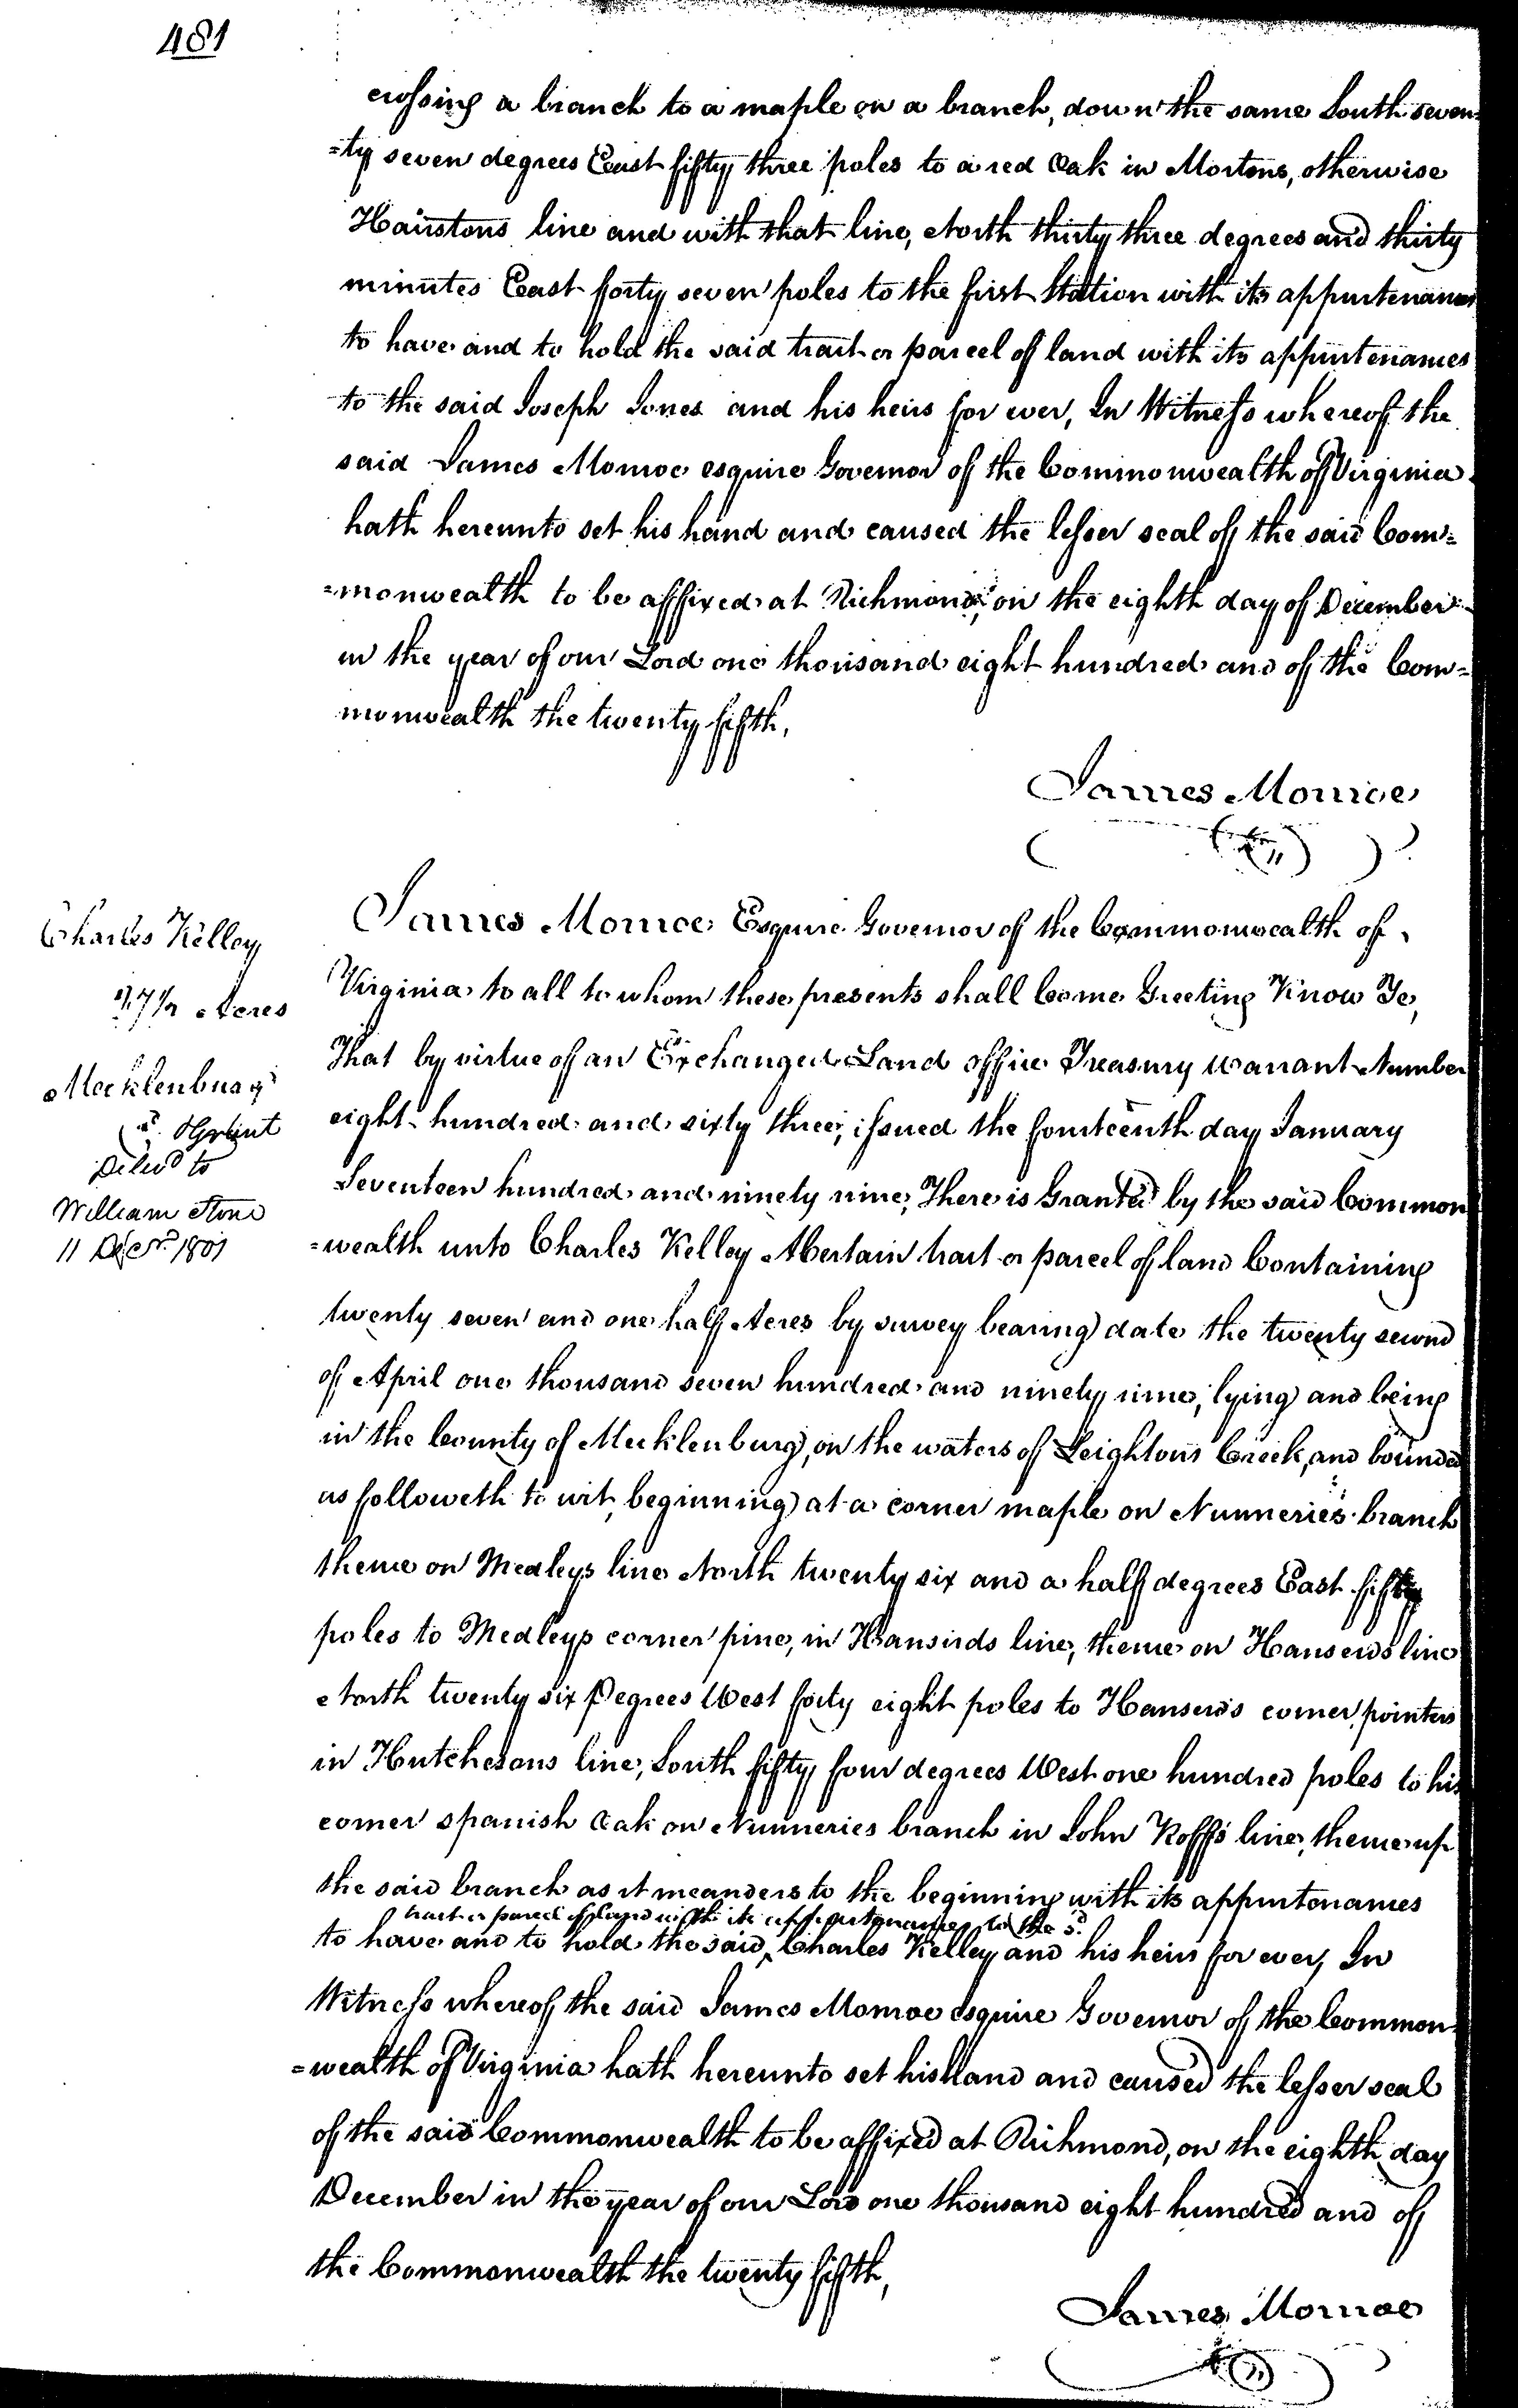 481
crossing a branch to a maple on a branch, down the same South seven=
=ty seven degrees East fifty three poles to a red Oak in Mortons, otherwise
Hairstons line and with that line, North thirty three degrees and thirty
minutes East forty seven poles to the first Station with its appurtenances
to have and to hold the said tract or parcel of land with its appurtenances
to the said Joseph Jones and his heirs for ever, In Witness whereof the
said James Monroe esquire Governor of the Commonwealth of Virginia
hath hereunto set his hand and caused the lesser seal of the said Com=
=monwealth to be affixed at Richmond, on the eighth day of December
in the year of our Lord one thousand eight hundred and of the Com=
monwealth the twenty fifth,
James Monroe
Charles Kelley
27 1/2 Acres
Mecklenburg
Delivd to
William Stone
11 Decr. 1801
James Monroe Esquire Governor of the Commonwealth of
Virginia to all to whom these presents shall Come Greeting Know Ye,
That by virtue of an Exchanged Land office Treasury warrant Number
eight hundred and sixty three, issued the fourteenth day January
Seventeen hundred and ninety nine, There is Granted by the said Common
=wealth unto Charles Kelley A Certain tract or parcel of land Containing
twenty seven and one half Acres by survey bearing date the twenty second
of April one thousand seven hundred and ninety nine, lying and being
in the County of Mecklenburg, on the waters of Leightons Creek, and bounded
as followeth to wit, beginning at a corner maple on Nunneries branch
thence on Medleys line North twenty six and a half degrees East fifty
poles to Medleys corner pine, in Hansirds line, thence on Hanserds line
North twenty six Degrees West forty eight poles to Hanserds corner, pointers
in Hutchesons line, South fifty four degrees West one hundred poles to his
corner spanish Oak on Nunneries branch in John Roffs line, thence up
the said branch as it meanders to the beginning with its appurtenances
tract or parcel of land with its appurtenances to the sd.
to have and to hold the said ^ Charles Kelley and his heirs for ever, In
Witness whereof the said James Monroe esquire Governor of the Common
=wealth of Virginia hath hereunto set his hand and caused the lesser seal
of the said Commonwealth to be affixed at Richmond, on the eighth day
December in the year of our Lord one thousand eight hundred and of
the Commonwealth the twenty fifth,
James Monroe